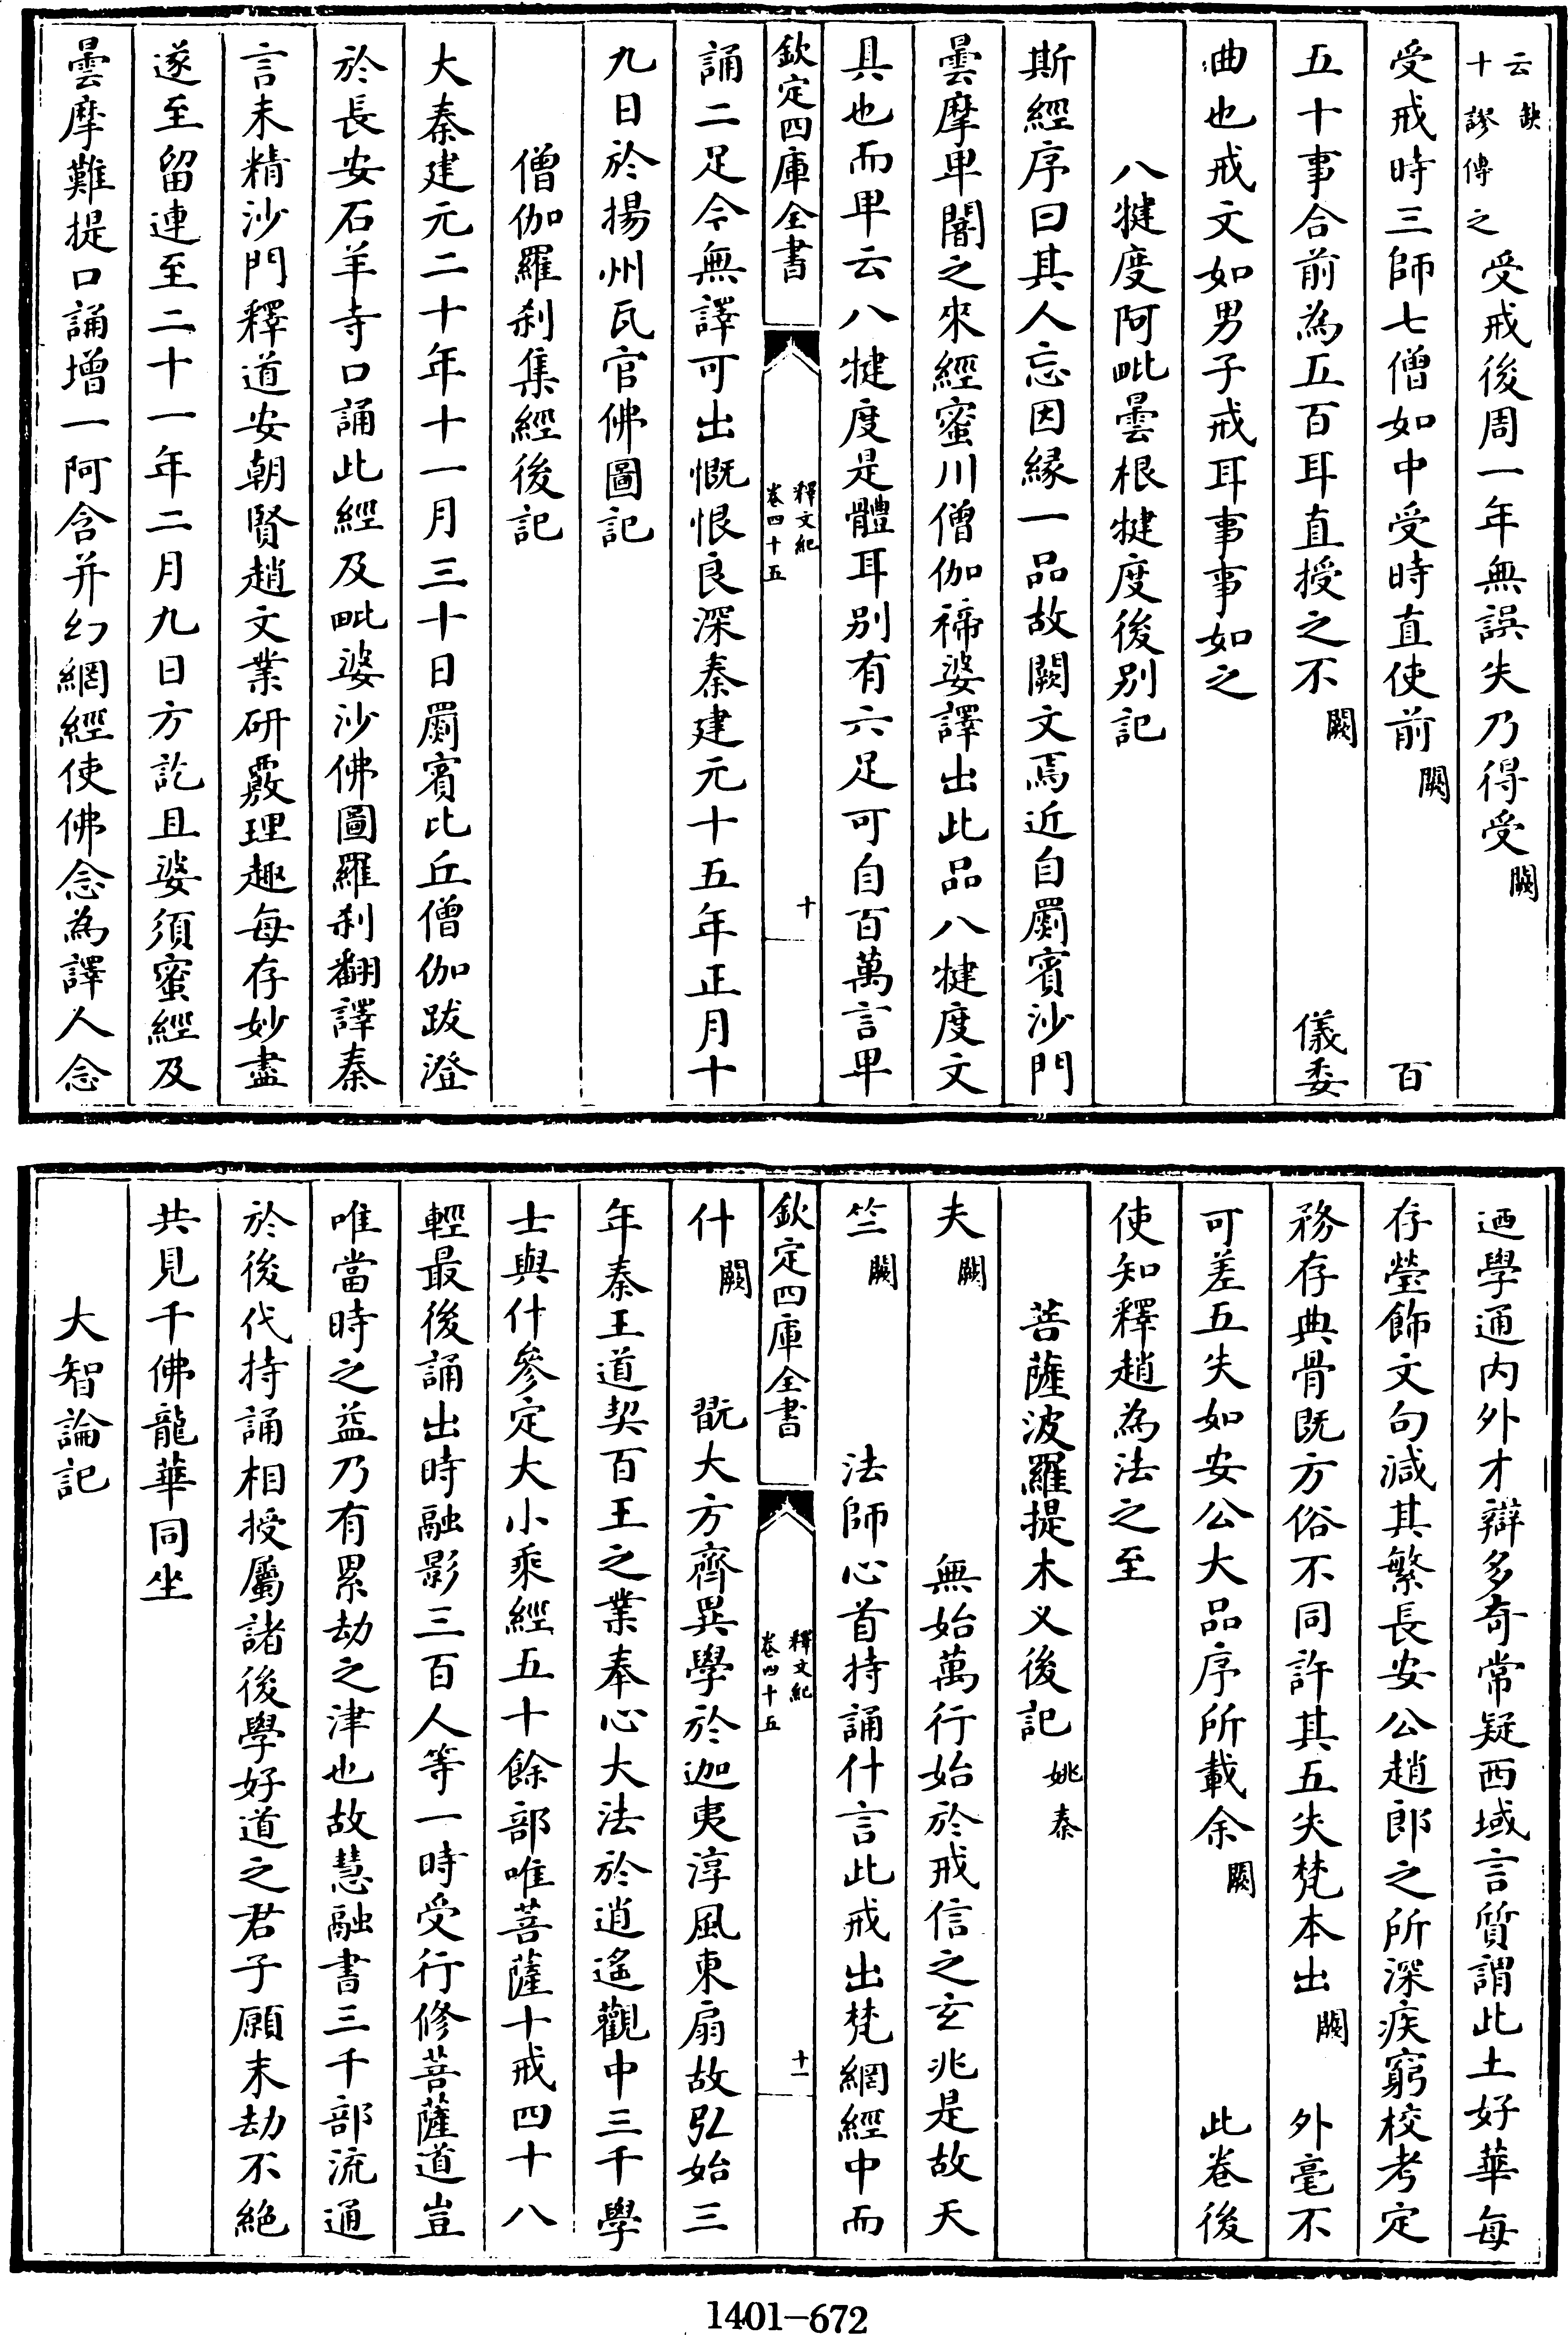 云缺十謬傳之受戒後周一年無誤失乃得受闕
受戒時三師七僧如中受時直使前闕百
五十事合前為五百耳直授之不闕儀委
曲也戒文如男子戒耳事事如之
八犍度阿毗曇根犍度後別記
斯經序曰其人忘因緣一品故闕文焉近自罽賓沙門
曇摩卑闇之來經蜜川僧伽褅婆譯出此品八犍度文
具也而卑云八犍度是體耳別有六足可自百萬言卑
欽定四庫全書
釋文紀
卷四十五
十
誦二足今無譯可出慨恨良深秦建元十五年正月十
九日於揚州瓦官佛圖記
僧伽羅刹集經後記
大秦建元二十年十一月三十日罽賓比丘僧伽跋澄
於長安石羊寺口誦此經及毗婆沙佛圖羅刹翻譯秦
言未精沙門釋道安朝賢趙文業研覈理趣每存妙盡
遂至留連至二十一年二月九日方訖且婆須蜜經及
曇摩難提口誦增一阿含并幻網經使佛念為譯人念
迺學通內外才辯多奇常疑西域言質謂此土好華每
存瑩飾文句減其繁長安公趙郎之所深疾窮校考定
務存典骨既方俗不同許其五失梵本出闕外毫不
可差五失如安公大品序所載余闕此卷後
使知釋趙為法之至
菩薩波羅提木义後記姚秦
夫闕無始萬行始於戒信之玄兆是故天
竺闕法師心首持誦什言此戒出梵網經中而
欽定四庫全書
釋文紀
卷四十五
十一
什闕翫大方齊異學於迦夷淳風東扇故弘始三
年秦王道契百王之業奉心大法於逍遙觀中三千學
士與什參定大小乘經五十餘部唯菩薩十戒四十八
輕最後誦出時融影三百人等一時受行修菩薩道豈
唯當時之益乃有累劫之津也故慧融書三千部流通
於後代持誦相授屬諸後學好道之君子願末劫不絕
共見千佛龍華同坐
大智論記
1401-672